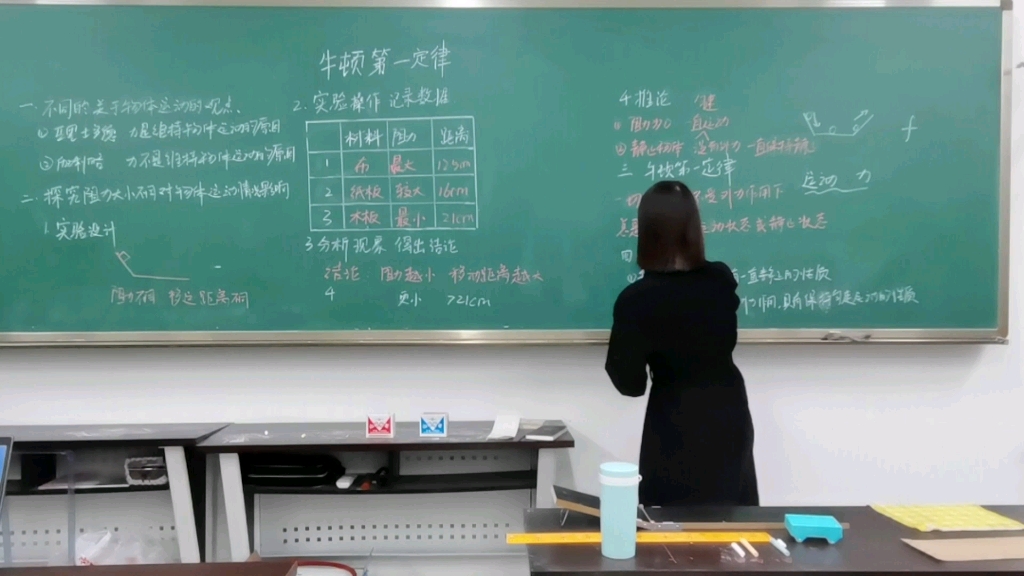 牛顿第一定律
一.不同的关于物体运动的观点.
①亚里士多德 力是维持物体运动的原因
②伽利略 力不是维持物体运动的原因
二.探究阻力大小不同对物体运动情况影响
1.实验设计
阻力不同 移动距离不同
2.实验操作 记录数据
材料 阻力 距离
1 布 最大 12.5cm
2 纸板 较大 16cm
3 木板 最小 21cm
3分析现象 得出结论
结论 阻力越小 移动距离越大
4 更小 >21cm
4推论
① 阻力为0
② 静止物体 一直保持静
三 牛顿第一定律
一切 力作用下
运动状态或静止状态
四
性质
作用,具有保持匀速运动的性质
f
运动 力